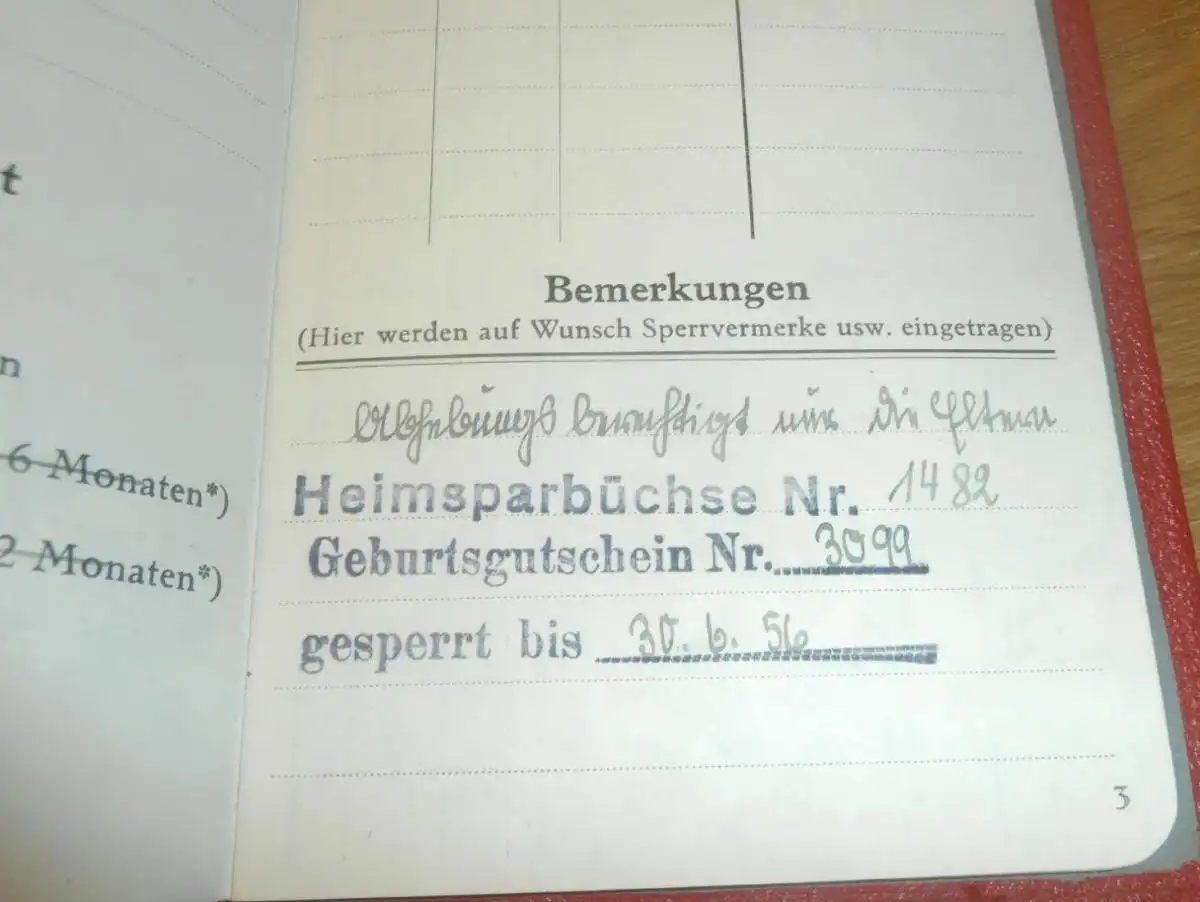 t
n
6 Monaten*)
2 Monaten*)
Bemerkungen
(Hier werden auf Wunsch Sperrvermerke usw. eingetragen)
Abhebungsberechtigt nur die Eltern
Heimsparbüchse Nr. 1482
Geburtsgutschein Nr. 3099
gesperrt bis 30. 6. 56
3